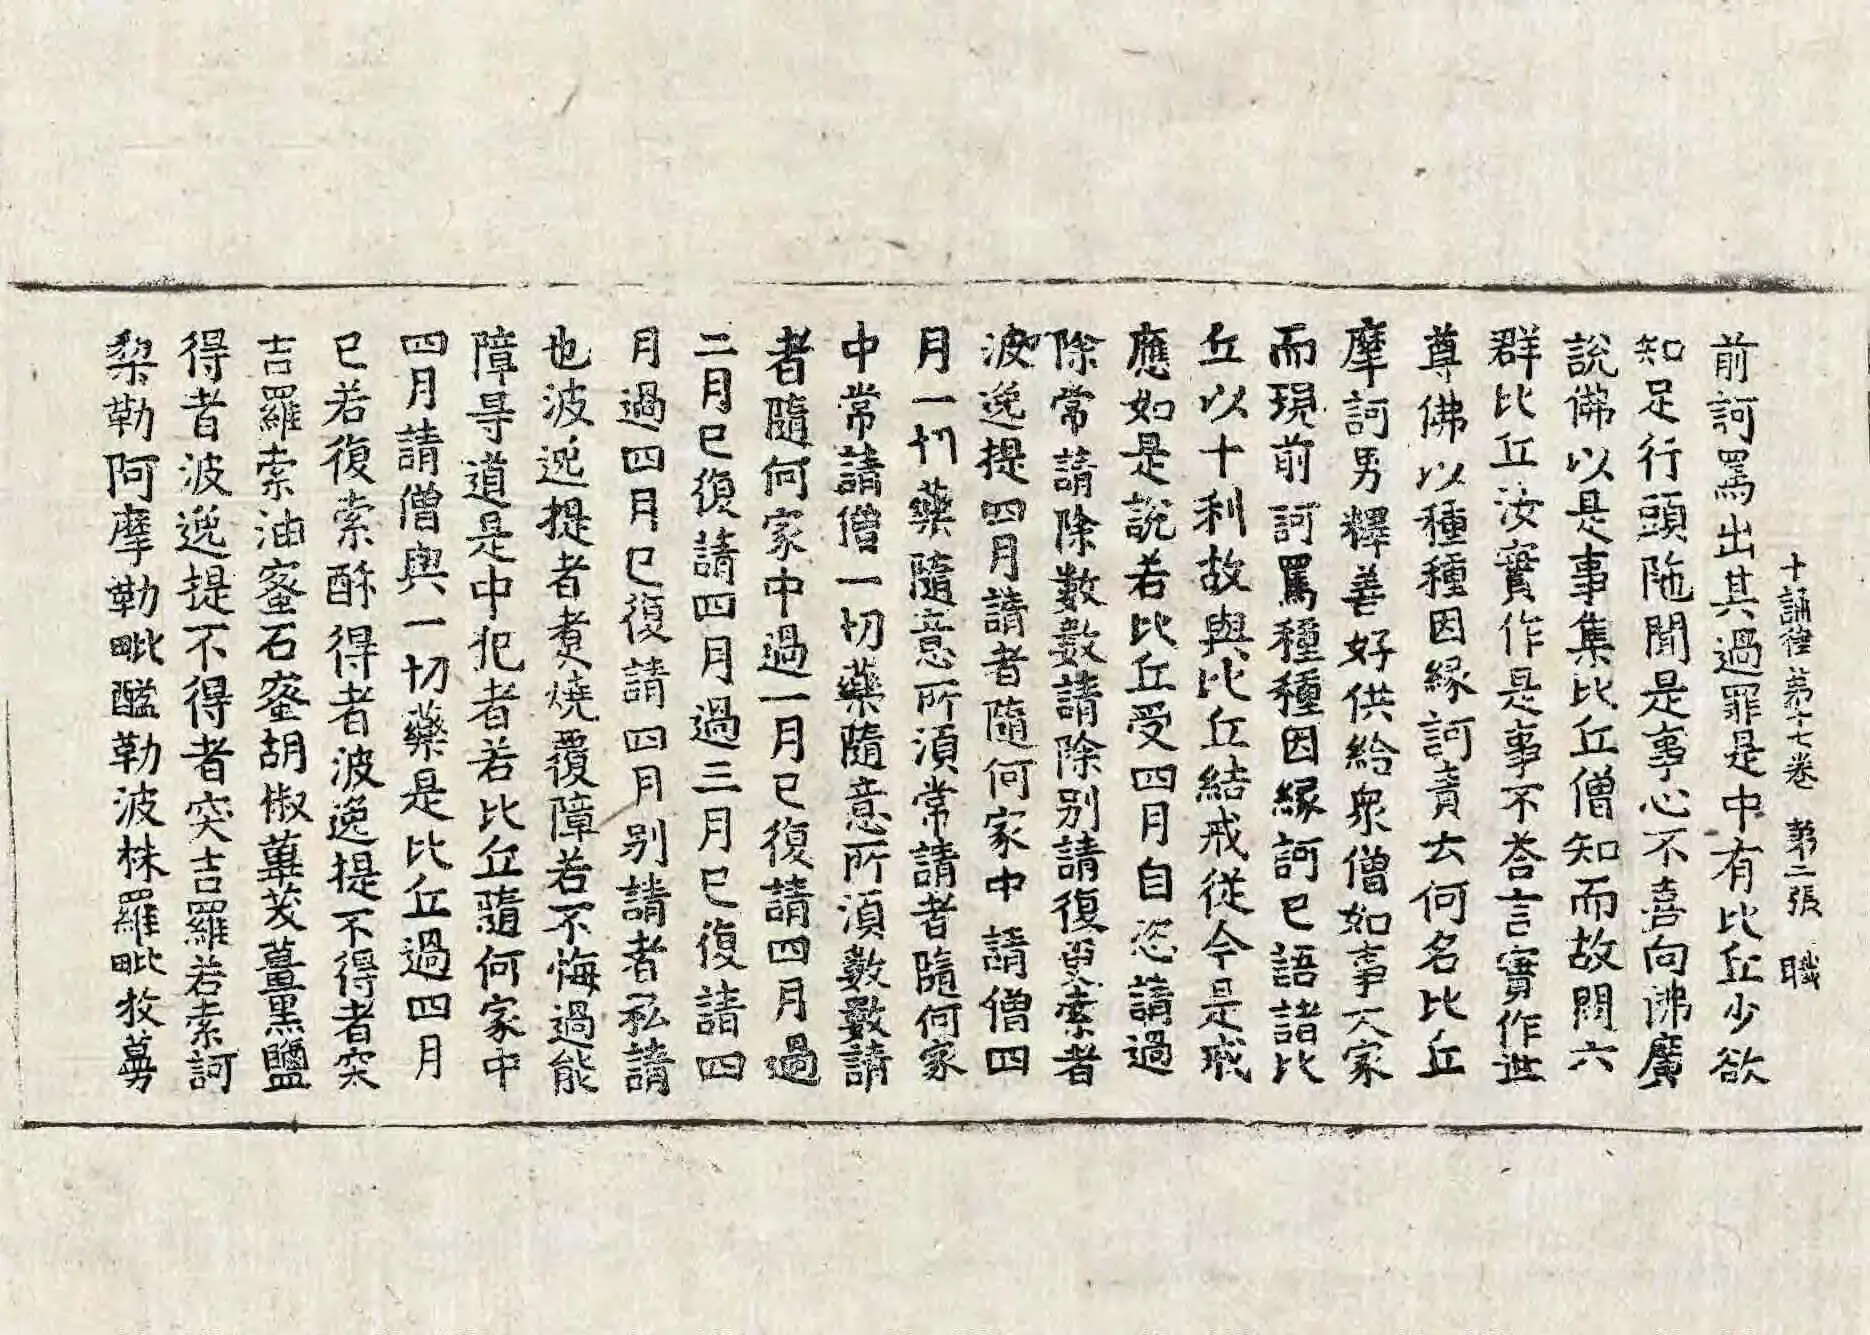 十誦律第十七卷　第二張　職
前訶罵出其過罪是中有比丘少欲
知足行頭陁聞是事心不喜向佛廣
說佛以是事集比丘僧知而故問六
群比丘汝實作是事不荅言實作世
尊佛以種種因緣訶責云何名比丘
摩訶男釋善好供給衆僧如事大家
而現前訶罵種種因緣訶已語諸比
丘以十利故與比丘結戒從今是戒
應如是說若比丘受四月自恣請過
除常請除數數請除別請復更索者
波逸提四月請者隨何家中請僧四
月一切藥隨意所湏常請者隨何家
中常請僧一切藥隨意所湏數數請
者隨何家中過一月已復請四月過
二月已復請四月過三月已復請四
月過四月已復請四月別請者私請
也波逸提者煑燒覆障若不悔過能
障㝵道是中犯者若比丘隨何家中
四月請僧與一切藥是比丘過四月
已若復索酥得者波逸提不得者突
吉羅索油蜜石蜜胡椒蓽茇薑黑鹽
得者波逸提不得者突吉羅若索訶
梨勒阿摩勒毗醯勒波株羅毗牧蒭